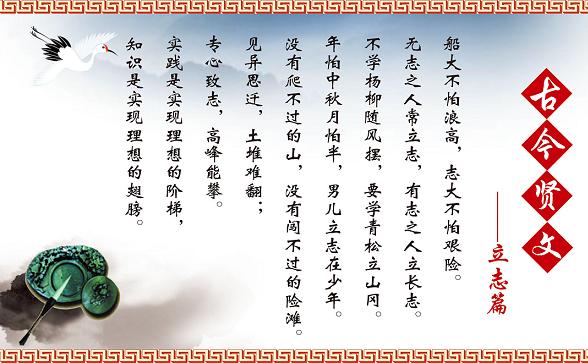 古今贤文
——立志篇
船大不怕浪高，志大不怕艰险。
无志之人常立志，有志之人立长志。
不学杨柳随风摆，要学青松立山冈。
年怕中秋月怕半，男儿立志在少年。
没有爬不过的山，没有闯不过的险滩。
见异思迁，土堆难翻；
专心致志，高峰能攀。
实践是实现理想的阶梯，
知识是实现理想的翅膀。